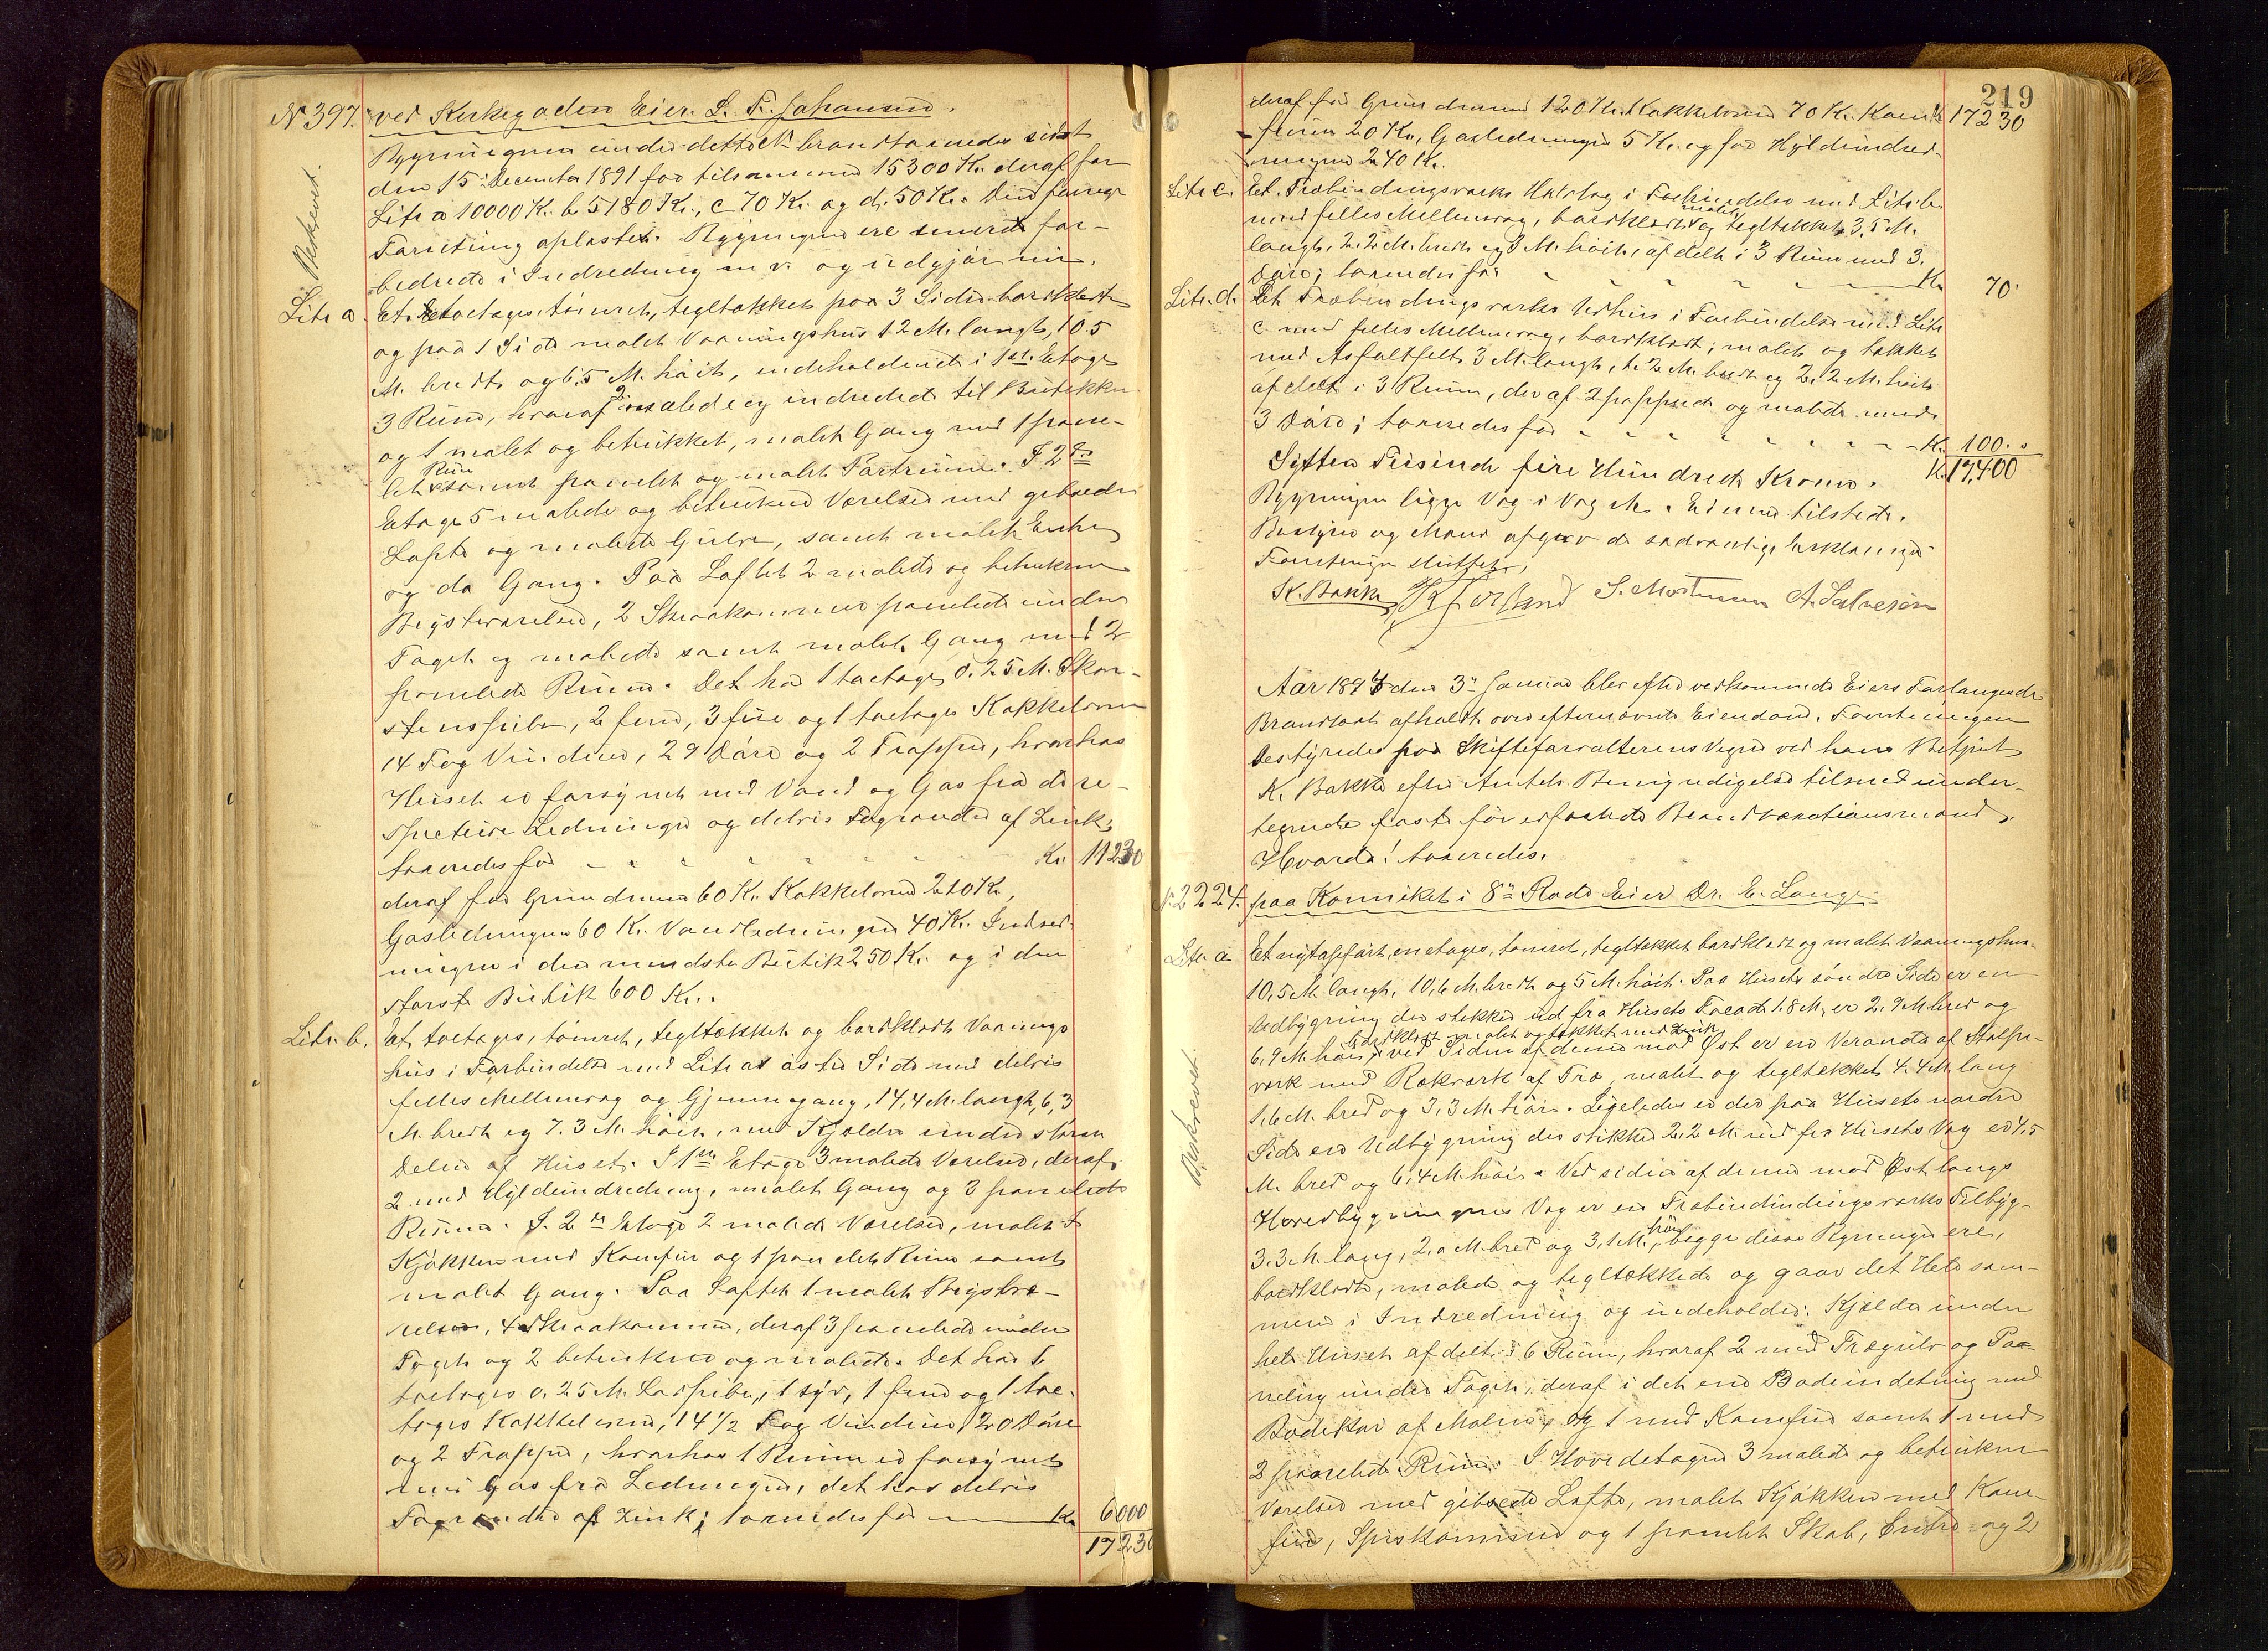 N 397. ved Kirkegaden Eier L. T. Johansen.
Bygningerne under dette N brandtaxeredes sidst
den 15 December 1891 for tilsammen 15300 Kr. deraf for
Litr a 10000 Kr. b 5180 Kr., c 70 Kr. og d. 50 Kr.
Forretning oplæstes. Bygningerne ere senere for-
bedrede i Indredning m. v. og udgjør nu.
Beskrevet.
Litr a. Et toetages, tømret, tegltækket paa 3 Sider bordklædt
og paa 1 Side malet Vaaningshus 12 M. langt, 10.5
M. bredt og 6.5 M. høit, indeholdende i 1ste Etage
3 Rum, hvoraf 2 malede og indredede til Butikker
og 1 malet og betrukket, malet Gang med 1 pane-
let Rum samt panelet og malet Portrum. I 2den
Etage 5 malede og betrukne Værelser med gibsede
Lofter og malede Gulve, samt malet Entre
og do Gang. Paa Loftet 2 malede og betrukne
Bigsteværelser, 2 Skraakammer panelede under
Taget og malede samt malet Gang med 2
panelede Rum. Det har 1 toetages 0.25 M. Skor-
stenspibe, 2 fem, 3 fire og 1 toetages Kakkelovne
14 Fag Vinduer, 29 Døre og 2 Trapper, hvorhos
Huset er forsynet med Vand og Gas fra de re-
spective Ledninger og delvis Tagrender af Zink;
taxeredes for Kr. 11230
deraf for Grundmur 60 Kr. Kakkelovne 210 Kr,
Gasledningen 60 Kr. Vandledningen 40 Kr. Indred-
ningen i den mindste Butik 250 Kr. og i den
største Butik 600 Kr..
Litr. b. Et toetages, tømret, tegltækket og bordklædt Vaanings
hus i Forbindelse med Litr a's østre Side med delvis
felles Mellemvæg og Gjennemgang, 14,4 M. langt, 6,3
M. bredt og 7.3 M. høit, med Kjelder under største
Delen af Huset. I 1ste Etage 3 malede Værelser, deraf
2 med Hyldeindredning, malet Gang og 3 panelede
Rum. I 2den Etage 2 malede Værelser, malet
Kjøkken med Komfur og 1 panelet Rum samt
malet Gang. Paa Loftet 1 malet Bigstevæ-
relse, 4 Skraakammer, deraf 3 panelede under
Taget og 2 betrukne og malede. Det har 1
toetages 0.25 M. Pibe, 1 syv, 1 fem og 1 toe-
tages Kakkelovne, 14 1/2 Fag Vinduer 20 Døre
og 2 Trapper, hvorhos 1 Rum er forsynet
med Gas fra Ledningen, det har delvis
Tagrender af Zink; taxeredes for Kr 6000
17230
219
deraf for Grundmur 120 Kr. Kakkelovne 70 Kr. Kom- Kr 17230
furen 20 Kr., Gasledningen 5 Kr. og for Hyldeindred-
ningen 240 Kr.
Litr c. Et Træbindingsværks Halvtag i Forbindelse med Litr. b.
med felles Mellemvæg, bordklædt, malet og tegltækket 3.5 M.
langt, 2.2 M. bredt og 3 M. høit, afdelt i 3 Rum med 3
Døre; taxeredes for Kr. 70.
Litr. d. Et Træbindingsværks Udhus i Forbindelse med Litr
c med felles Mellemvæg, bordklædt, malet og tækket
med Asfaltfelt 3 M. langt, 1.2 M. bredt og 2.2 M. høit
afdelt i 3 Rum, deraf 2 pappede og malede med
3 Døre; taxeredes for Kr. 100.
Sytten Tusinde fire Hundrede Kroner. K. 17,400
Bygningen ligge Væg i Væg. Eieren tilstede.
Bestyrer og Mænd afgav de sædvanlige Erklæringer
Forretningen sluttet.
K. Bakke S. Mortensen A. Salvesen
Aar 1894 den 3die Januar blev efter vedkommende Eiers Forlangende
Brandtaxt afholdt over efternævnte Eiendom. Forretningen
bestyredes paa Skifteforvalterens Vegne ved hans Betjent
K. Bakke efter Amtets Bemyndigelse tilligemed under-
tegnede faste før edfæstede Brandtaxationsmænd.
Hvorda! taxeredes.
N 2224. paa Konniket i 8de Rode Eier Dr. E. Lange.
Litr. a Et nyopført, enetages, tømret, tegltækket bordklædt og malet Vaaningshus.
10,5 M. langt, 10,6 M. bredt og 5 M. høit. Paa Husets søndre Side er en
Udbygning der stikker ud fra Husets Facade 1.8 M, er 2.9 M bred og
6,9 M. høi, bordklædt malet og tækket med Zink, ved Siden af denne mod Øst er en Veranda af Stolpe-
værk med Rækværk af Træ, malet og tegltækket 4.4 M. lang
1,6 M. bred og 3,3 M. høi. Ligeledes er der paa Husets nordre
Side en Udbygning der stikker 2,2 M. ud fra Husets Væg er 4.5
M. bred og 6,4 M. høi. Ved siden af denne mod Øst langs
Beskrevet.
Hovedbygningens Væg er en Træbindingsværks Tilbyg-
3.3 M. lang, 2.0 M. bred og 3,1 M. høi, begge disse Bygninger ere,
bordklædte, malede og tegltækkede og gaar det Hele sam-
men i Indredning og indeholder: Kjelder under
hele Huset afdelt i 6 Rum, hvoraf 2 med Trægulv og Pa-
neling under Taget, deraf i det ene Badeindretning med
Badekar af og 1 med Komfur samt 1 med
2 panelede Rum. I Hovedetagen 3 malede og betrukne
Værelser med gibsede Lofte, malet Kjøkken med Kom-
fur, Spiskammer og 1 panelet Skab, Entre og 2